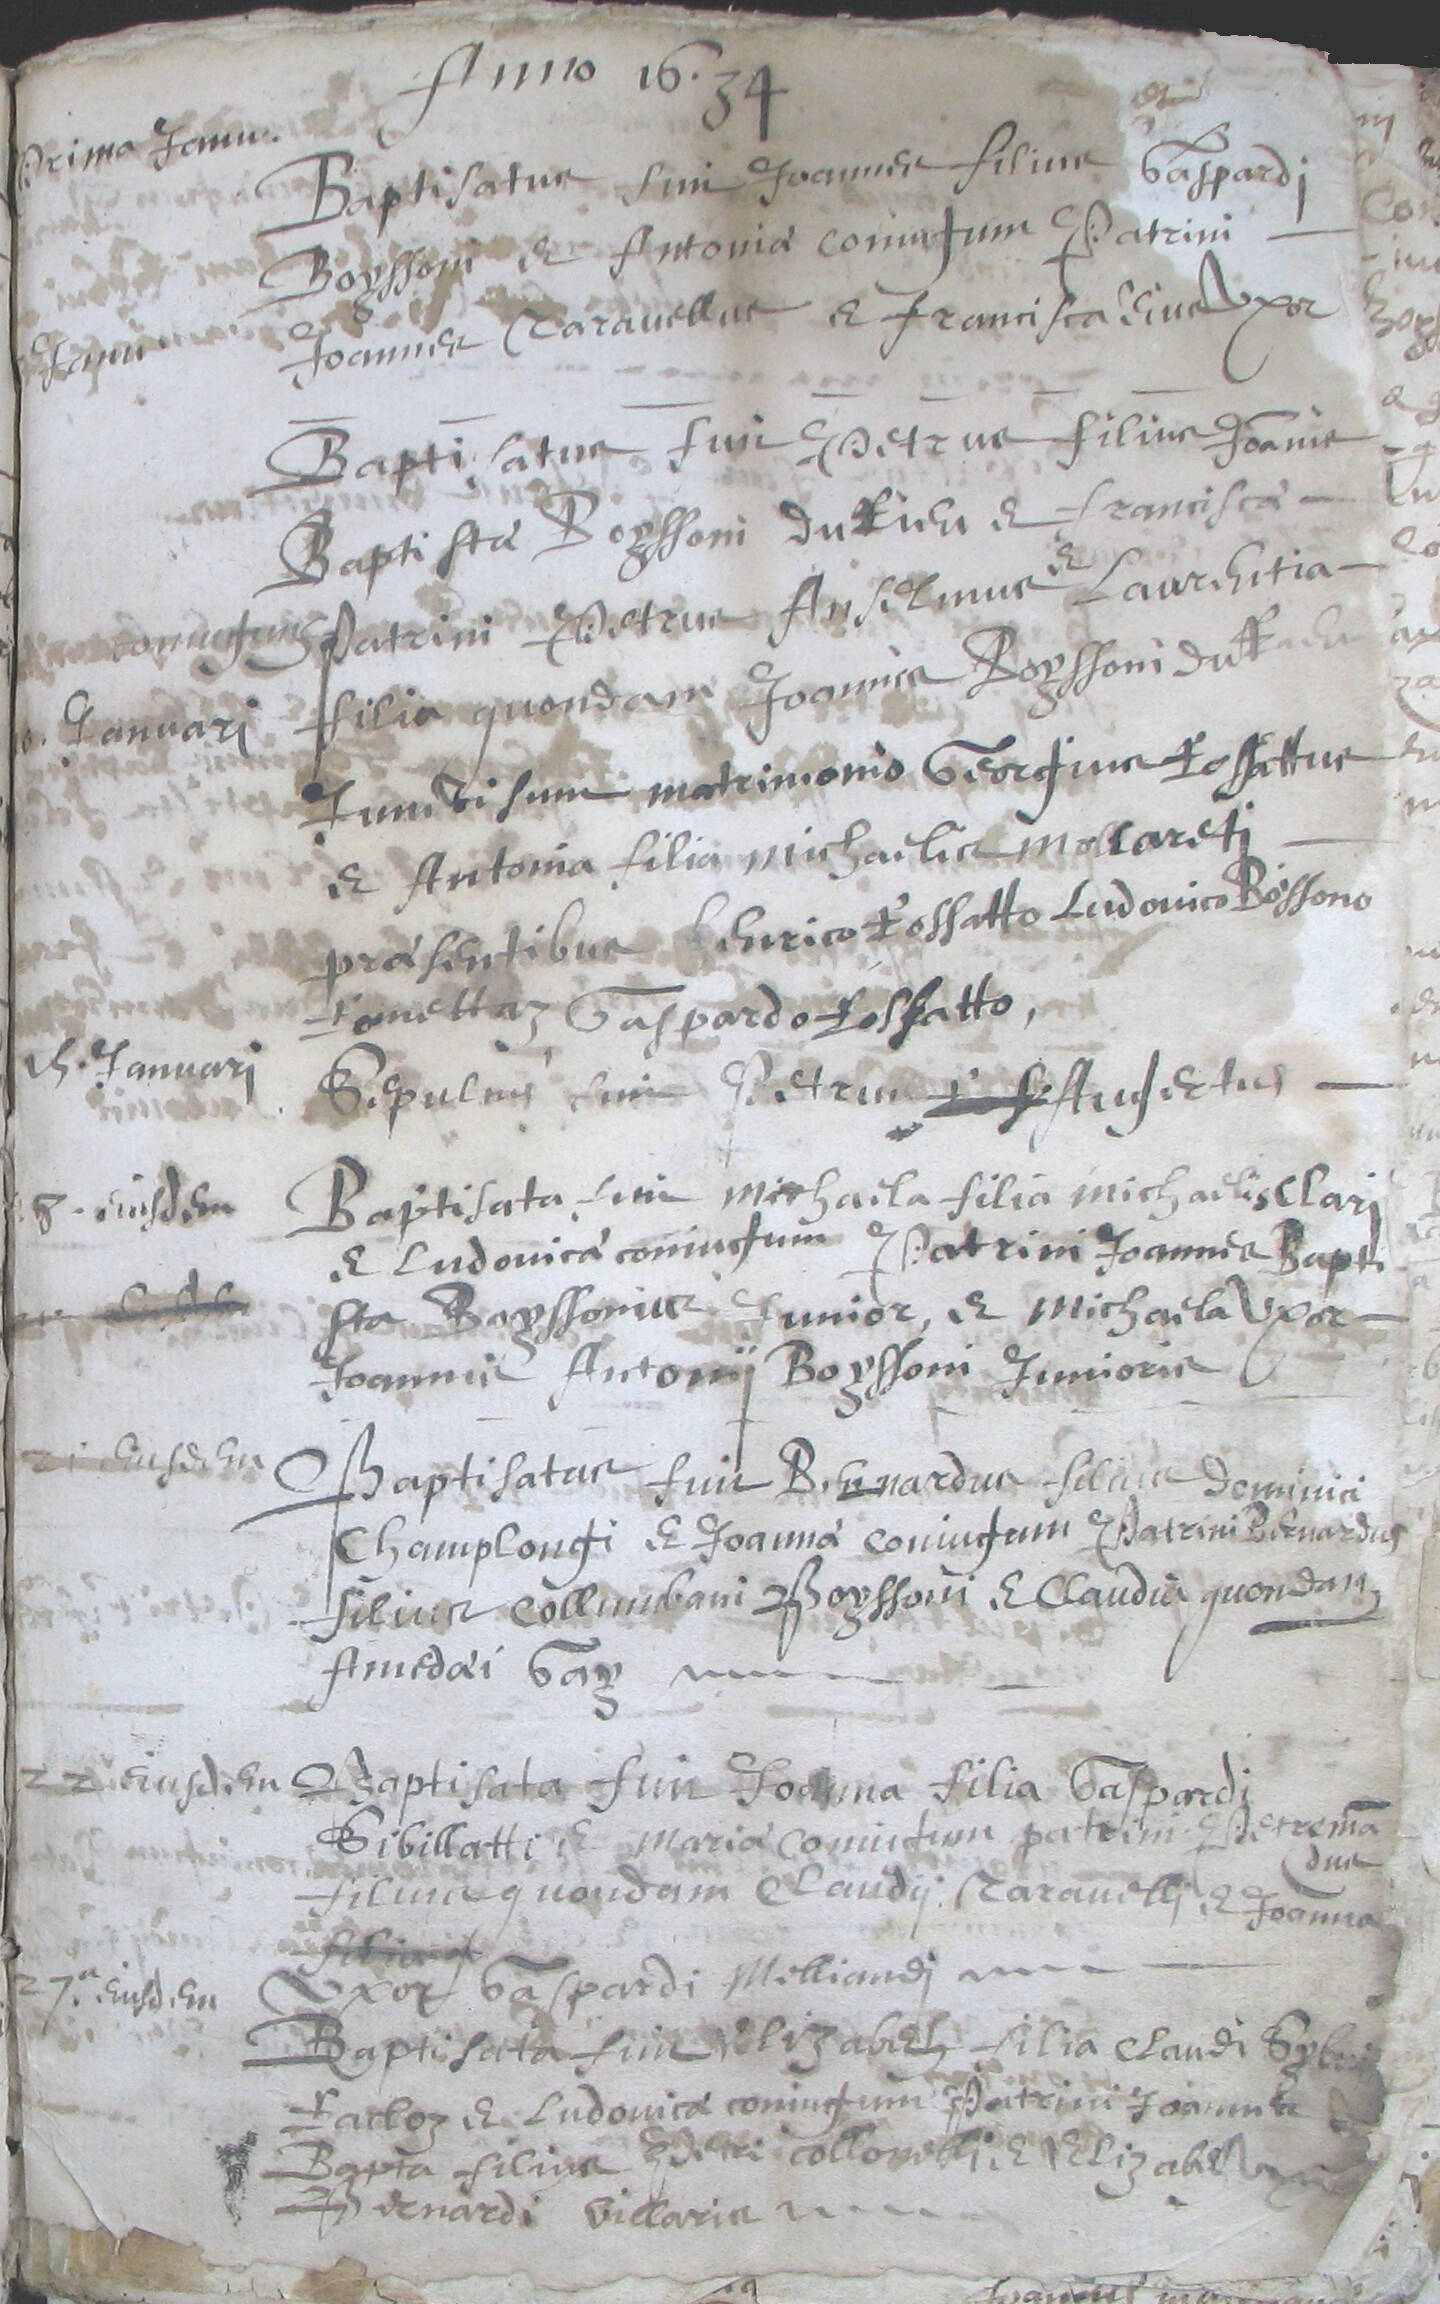 Anno 16.34
Prima Janu.
Baptisatus fuit Joannes filius Gaspardi
Boyssoni & Antoniæ coniugum Patrini
Joannes Naravellus & Francisca eius Uxor
Janu
Baptisatus fuit Petrus filius Joānis
Baptistæ Boyssoni & Franciscæ
coniugum Patrini Petrus Anselmus & Laurentia
filia quondam Joannis Boyssoni
Januarj
Juncti sunt matrimonio Georgius Fossattus
& Antonia filia Michaelis Mollaretj
præsentibus henrico Fossatto Ludovico Bossono
Gaspardo Fossatto,
Januarj
Sepultus fuit Petrus
8. eiusdem
Baptisata fuit Michaela filia Michaelis Clarj
& Ludovicæ coniugum Patrini Joannes Bapti
sta Boyssonius Junior, & Michaela Uxor
Joannis Antonij Boyssoni Junioris
21 eiusdem
Baptisatus fuit Bernardus filius Dominici
Champlongi & Joannæ coniugum Patrini Bernardus
filius Collumbani Boyssoni & Claudia quondam
Amedæi Gay
22 eiusdem
Baptisata fuit Joanna filia Gaspardi
Sibillatti & Mariæ coniugum patrini Petremā
dus
filius quondam Claudij Naravellj & Joanna
filia
Uxor Gaspardi Melliandj
27.a eiusdem
Baptisata fuit Elizabeth filia Claudi
& Ludovicæ coniugum Patrini Joannes
Bapta filius Petri Collombj & Elizabe
Bernardi Villaris